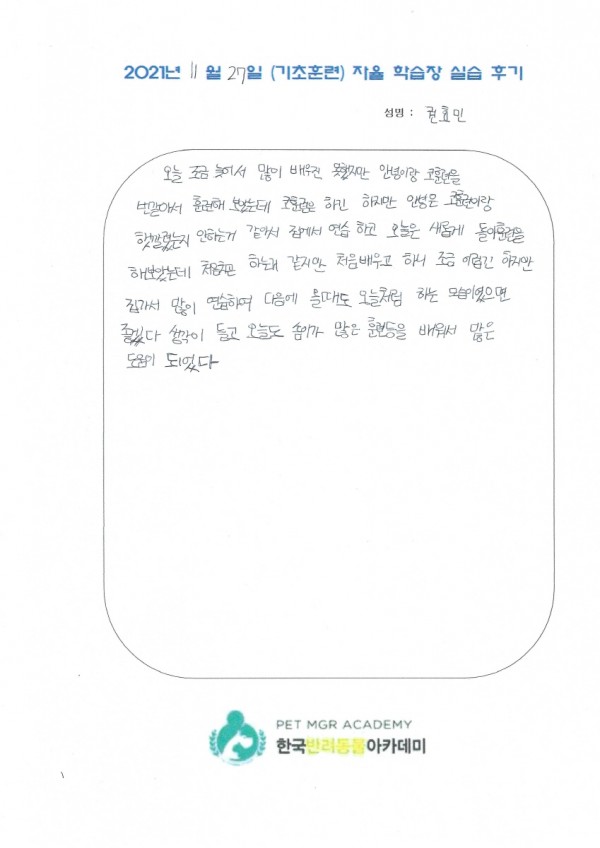 2021년 11월 27일 (기초훈련) 자율 학습장 실습 후기
성명 : 권효민
오늘 조금 늦어서 많이 배우진 못했지만 안녕이랑 코훈련을
번갈아서 훈련해 보았는데 코훈련은 하긴 하지만 안녕은 코훈련이랑
헷깔렸는지 안하는거 같아서 집에서 연습 하고 오늘은 새롭게 돌아훈련을
해보았는데 처음치곤 하는거 같지만 처음배우고 하니 조금 어렵긴 하지만
집가서 많이 연습하여 다음에 올때도 오늘처럼 하는 모습이였으면
좋겠다 생각이 들고 오늘도 솜이가 많은 훈련등을 배워서 많은
도움이 되었다
PET MGR ACADEMY
한국반려동물아카데미